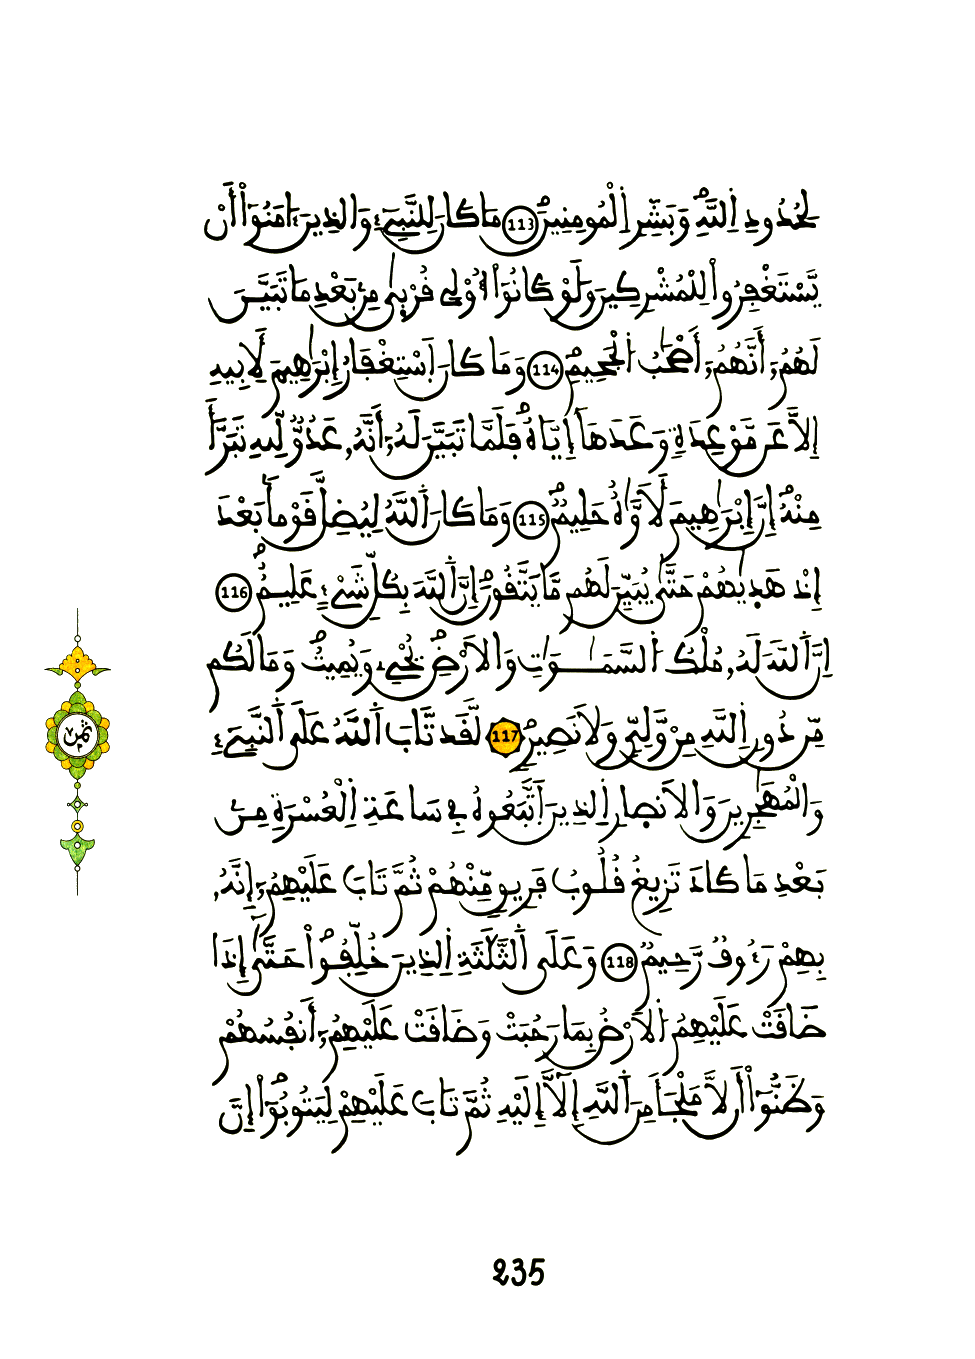 لِحُدُودِ اِ۬للَّهِۖ وَبَشِّرِ اِ۬لْمُومِنِينَۖ 113 مَا كَانَ لِلنَّبِےٓءِ وَالذِينَ ءَامَنُوٓاْ أَنْ
يَّسْتَغْفِرُواْ لِلْمُشْرِكِينَ وَلَوْ كَانُوٓاْ أُوْلِے قُرْب۪ىٰ مِنۢ بَعْدِ مَا تَبَيَّنَ
لَهُمُۥٓ أَنَّهُمُۥٓ أَصْحَٰبُ اُ۬لْجَحِيمِۖ 114 وَمَا كَانَ اَ۪سْتِغْفَارُ إِبْرَٰهِيمَ لِأَبِيهِ
إِلَّا عَن مَّوْعِدَةٖ وَعَدَهَآ إِيَّاهُۖ فَلَمَّا تَبَيَّنَ لَهُۥٓ أَنَّهُۥ عَدُوّٞ لِّلهِ تَبَرَّأَ
مِنْهُۖ إِنَّ إِبْرَٰهِيمَ لَأَوَّٰهٌ حَلِيمٞۖ 115 وَمَا كَانَ اَ۬للَّهُ لِيُضِلَّ قَوْماَۢ بَعْدَ
إِذْ هَد۪يٰهُمْ حَتَّىٰ يُبَيِّنَ لَهُم مَّا يَتَّقُونَۖ إِنَّ اَ۬للَّهَ بِكُلِّ شَےْءٍ عَلِيمٌۖ 116
اِنَّ اَ۬للَّهَ لَهُۥ مُلْكُ اُ۬لسَّمَٰوَٰتِ وَالَارْضِۖ يُحْيِۦ وَيُمِيتُۖ وَمَا لَكُم
مِّن دُونِ اِ۬للَّهِ مِنْ وَّلِيّٖ وَلَا نَصِيرٖۖ 117 لَّقَد تَّابَ اَ۬للَّهُ عَلَى اَ۬لنَّبِےٓءِ
وَالْمُهَٰجِرِينَ وَالَانصِارِ اِ۬لذِينَ اَ۪تَّبَعُوهُ فِے سَاعَةِ اِ۬لْعُسْرَةِ مِنۢ
بَعْدِ مَا كَادَ تَزِيغُ قُلُوبُ فَرِيقٖ مِّنْهُمْ ثُمَّ تَابَ عَلَيْهِمُۥٓ إِنَّهُۥ
بِهِمْ رَءُوفٞ رَّحِيمٞۖ 118 وَعَلَى اَ۬لثَّلَٰثَةِ اِ۬لذِينَ خُلِّفُواْۖ حَتَّىٰٓ إِذَا
ضَاقَتْ عَلَيْهِمُ اُ۬لَارْضُ بِمَا رَحُبَتْ وَضَاقَتْ عَلَيْهِمُۥٓ أَنفُسُهُمْ
وَظَنُّوٓاْ أَن لَّا مَلْجَأَ مِنَ اَ۬للَّهِ إِلَّآ إِلَيْهِ ثُمَّ تَابَ عَلَيْهِمْ لِيَتُوبُوٓاْۖ إِنَّ
ثمن
235